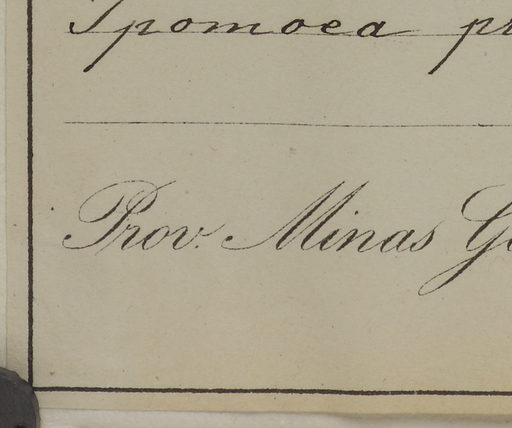 Ipomoea pr
Prov. Minas Ge